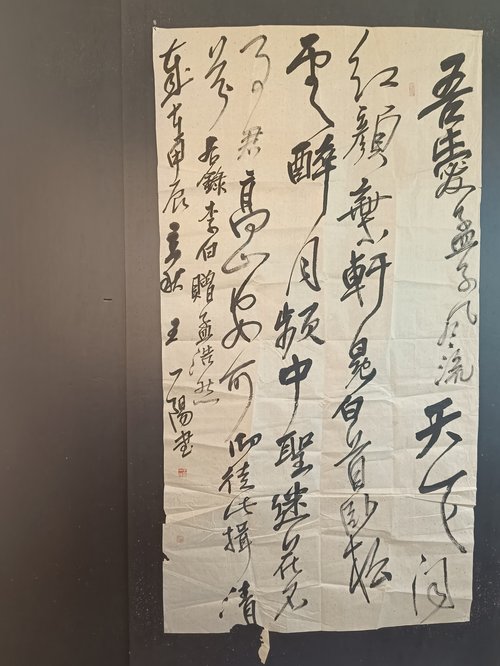 吾愛孟夫子风流天下闻
红顏棄軒冕白首卧松
雲醉月频中聖迷花不
事君高山安可仰徒此揖清
芬 右錄李白贈孟浩然
歲在甲辰秋 王一陽書